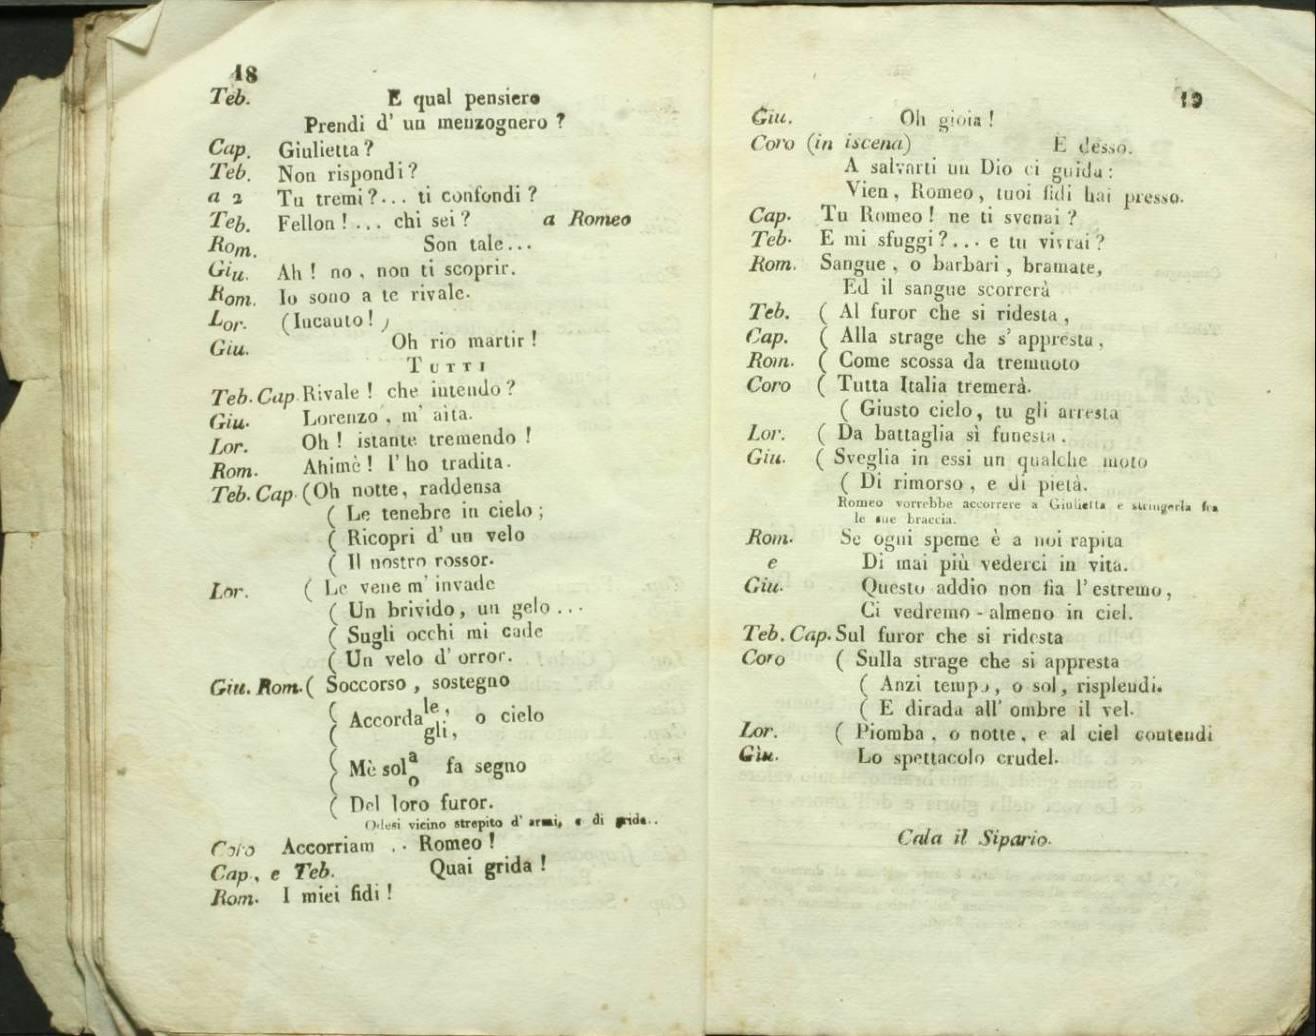 18
Teb. E qual pensiero
Prendi d' un menzognero ?
Cap. Giulietta ?
Teb. Non rispondi ?
a 2 Tu tremi ?... ti confondi ?
Teb. Fellon ! ... chi sei ? a Romeo
Rom. Son tale...
Giu. Ah ! no , non ti scoprir.
Rom. Io sono a te rivale.
Lor. (Incauto! )
Giu. Oh rio martir !
TUTTI
Teb. Cap. Rivale ! che intendo ?
Giu. Lorenzo , m' aita.
Lor. Oh ! istante tremendo !
Rom. Ahimè ! l' ho tradita.
Teb. Cap. (Oh notte, raddensa
( Le tenebre in cielo ;
( Ricopri d' un velo
( Il nostro rossor.
Lor. ( Le vene m' invade
( Un brivido, un gelo ...
( Sugli occhi mi cade
( Un velo d' orror.
Giu. Rom. ( Soccorso , sostegno
( Accorda le, gli, o cielo
( Mè sol a o fa segno
( Del loro furor.
Odesi vicino strepito d' armi, e di grida..
Coro Accorriam .. Romeo !
Cap., e Teb. Quai grida !
Rom. I miei fidi !
19
Giu. Oh gioia !
Coro (in iscena) E desso.
A salvarti un Dio ci guida :
Vien, Romeo, tuoi fidi hai presso.
Cap. Tu Romeo ! ne ti svenai ?
Teb. E mi sfuggi ?... e tu vivrai ?
Rom. Sangue , o barbari , bramate,
Ed il sangue scorrerà
Teb. ( Al furor che si ridesta ,
Cap. ( Alla strage che s' appresta ,
Rom. ( Come scossa da tremuoto
Coro ( Tutta Italia tremerà.
( Giusto cielo, tu gli arresta
Lor. ( Da battaglia sì funesta .
Giu. ( Sveglia in essi un qualche moto
( Di rimorso , e di pietà.
Romeo vorrebbe accorrere a Giulietta e stringerla fra
le sue braccia.
Rom. Se ogni speme è a noi rapita
e Di mai più vederci in vita.
Giu. Questo addio non fia l' estremo,
Ci vedremo - almeno in ciel.
Teb. Cap. Sul furor che si ridesta
Coro ( Sulla strage che si appresta
( Anzi tempo, o sol, risplendi.
( E dirada all' ombre il vel.
Lor. ( Piomba , o notte, e al ciel contendi
Giu. Lo spettacolo crudel.
Cala il Sipario.